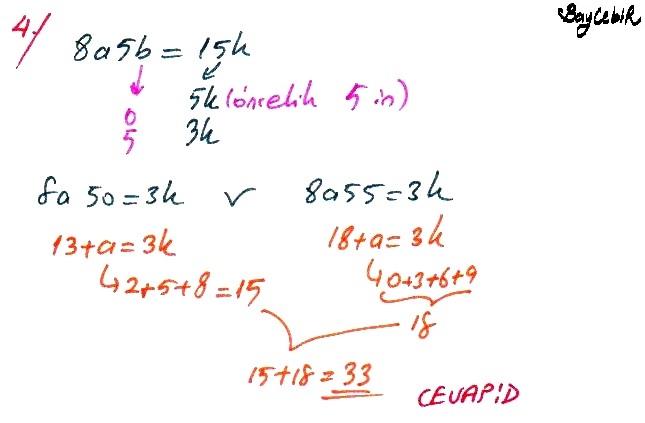 BayCebiR
4./
8a5b = 15k
5k (öncelik 5 in)
0
5 3k
8a 50 = 3k v 8a55 = 3k
13+a = 3k 18+a = 3k
↳ 2+5+8 = 15 ↳ 0+3+6+9
18
15+18 = 33
CEVAP:D